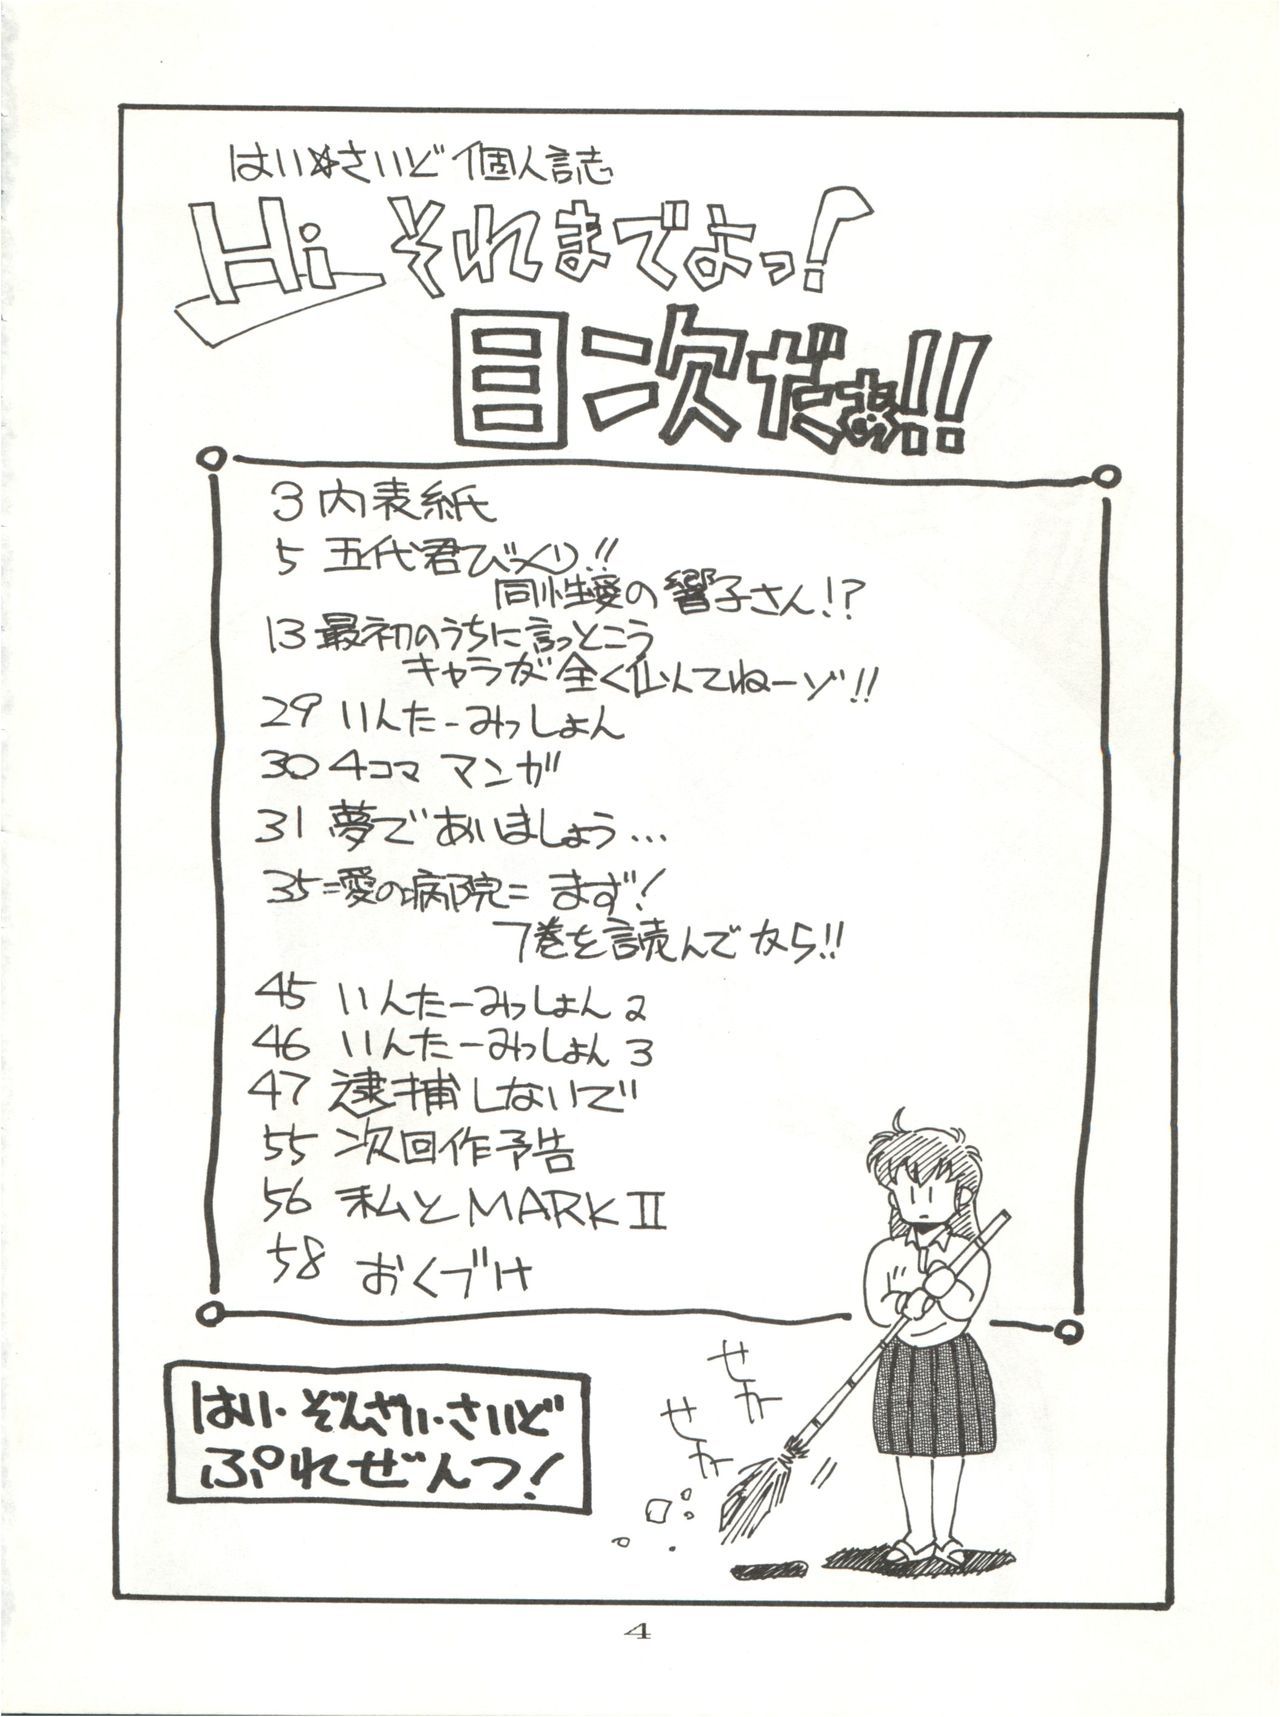 はい☆さいど個人誌
Hi それまでよっ!
目次だぁ!!
3 内表紙
5 五代君びっくり!!
同性愛の響子さん!?
13 最初のうちに言っとこう
キャラが全く似てねーゾ!!
29 いんたーみっしょん
30 4コママンガ
31 夢であいましょう…
35 =愛の病院= まず!
7巻を読んでから!!
45 いんたーみっしょん2
46 いんたーみっしょん3
47 逮捕しないで
55 次回作予告
56 私とMARKⅡ
58 おくづけ
せか
せか
はい・ぞんざい・さいど
ぷれぜんつ!
4